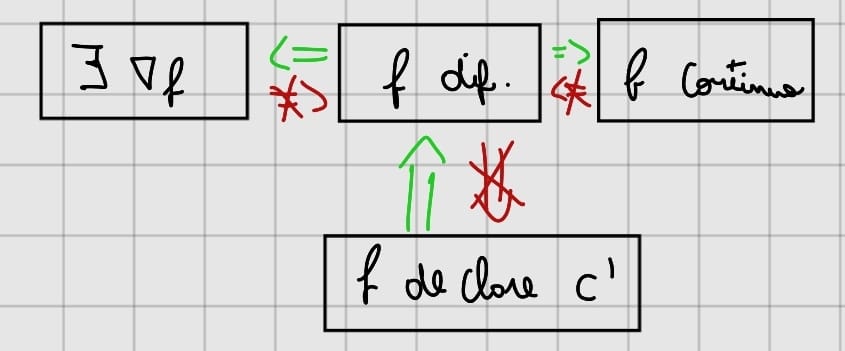 ∃ ∇f ⇐ f dif. ⇒ f continua
⇏ ⇍
⇑ ⇓
f de clase C¹